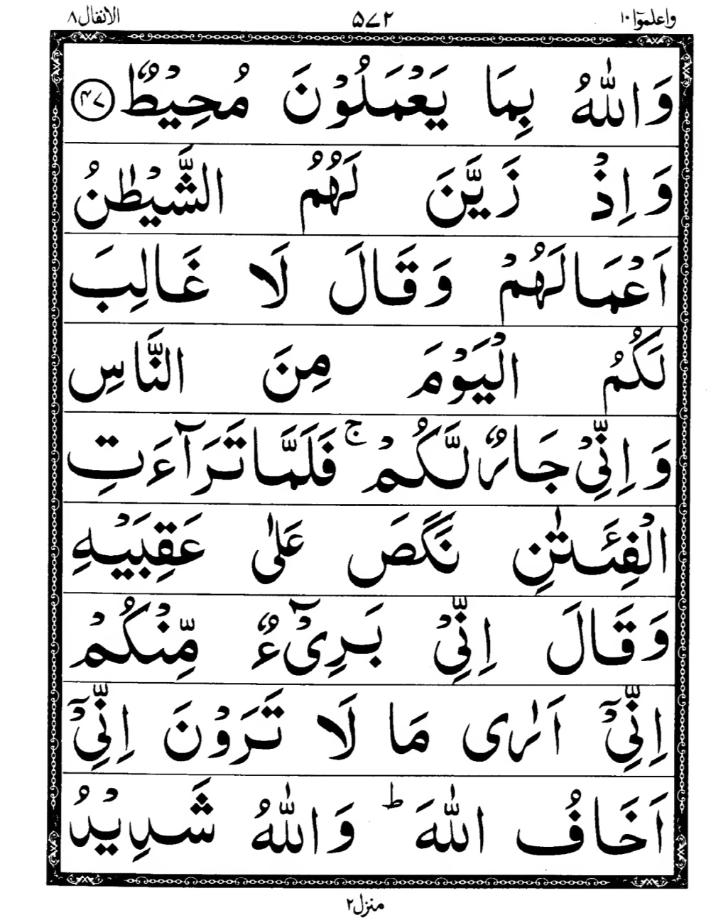 واعلموٓا۱۰ ۵۷۲ الانفال۸
وَاللّٰهُ بِمَا يَعْمَلُوْنَ مُحِيْطٌ ﴿۴۷﴾
وَاِذْ زَيَّنَ لَهُمُ الشَّيْطٰنُ
اَعْمَالَهُمْ وَقَالَ لَا غَالِبَ
لَكُمُ الْيَوْمَ مِنَ النَّاسِ
وَاِنِّىْ جَارٌ لَّكُمْ ۚ فَلَمَّا تَرَآءَتِ
الْفِئَتٰنِ نَكَصَ عَلٰى عَقِبَيْهِ
وَقَالَ اِنِّىْ بَرِىْٓءٌ مِّنْكُمْ
اِنِّىْٓ اَرٰى مَا لَا تَرَوْنَ اِنِّىْٓ
اَخَافُ اللّٰهَ ؕ وَاللّٰهُ شَدِيْدُ
منزل۲